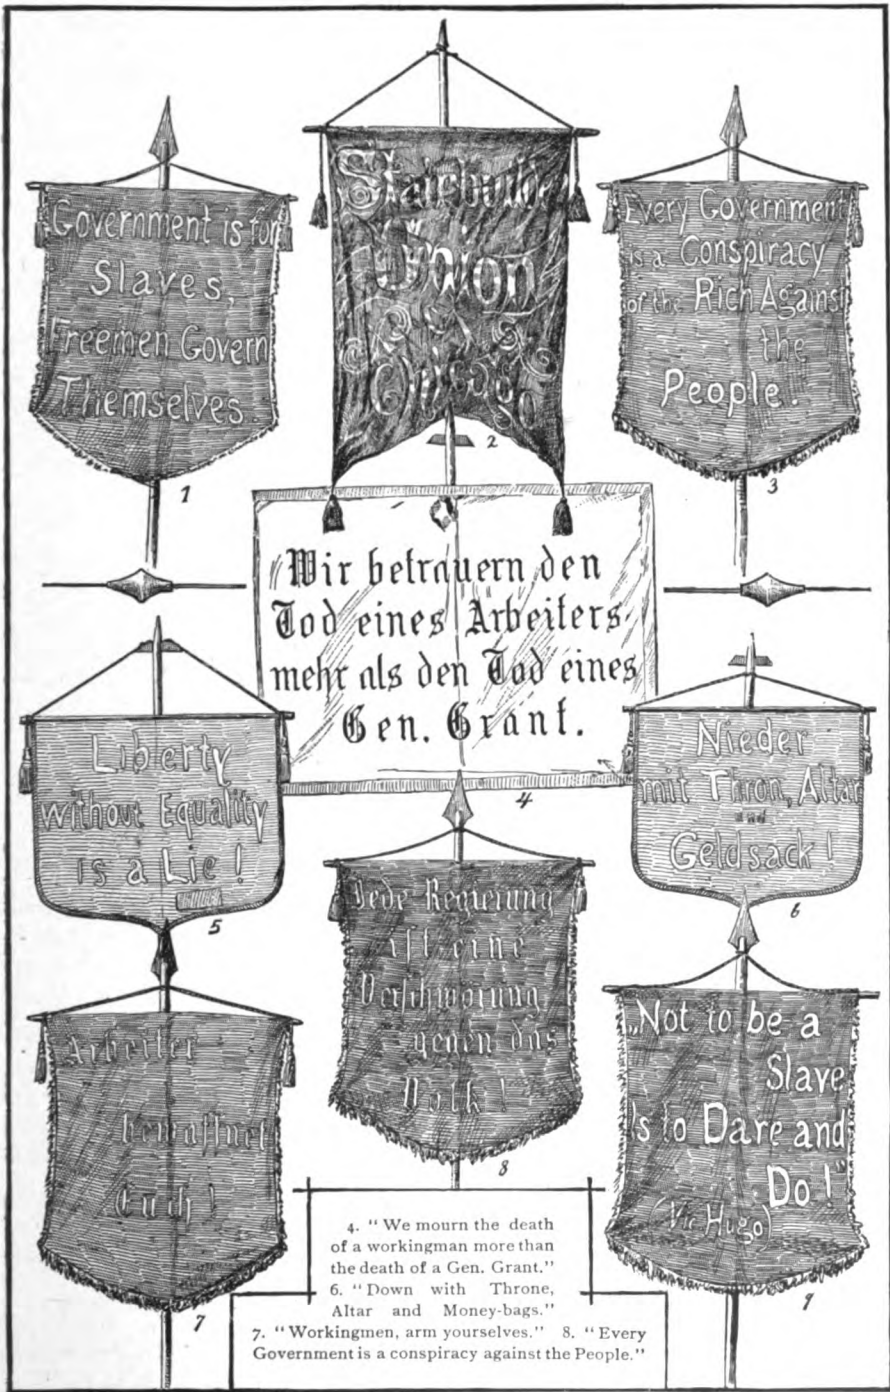 Government is for
Slaves,
Freemen Govern
Themselves.
1
Stairbuilder
Union
Chicago
2
Every Government
is a Conspiracy
of the Rich Against
the
People!
3
"Wir betrauern den
Tod eines Arbeiters
mehr als den Tod eines
Gen. Grant.
4
Liberty
without Equality
is a Lie!
5
Nieder
mit Thron, Altar
und
Geldsack!
6
Arbeiter
bewaffnet
Euch!
7
Jede Regierung
ist eine
Verschwörung
gegen das
Volk!
8
„Not to be a
Slave
Is to Dare and
Do!"
(Vic Hugo)
9
4. "We mourn the death
of a workingman more than
the death of a Gen. Grant."
6. "Down with Throne,
Altar and Money-bags."
7. "Workingmen, arm yourselves." 8. "Every
Government is a conspiracy against the People."